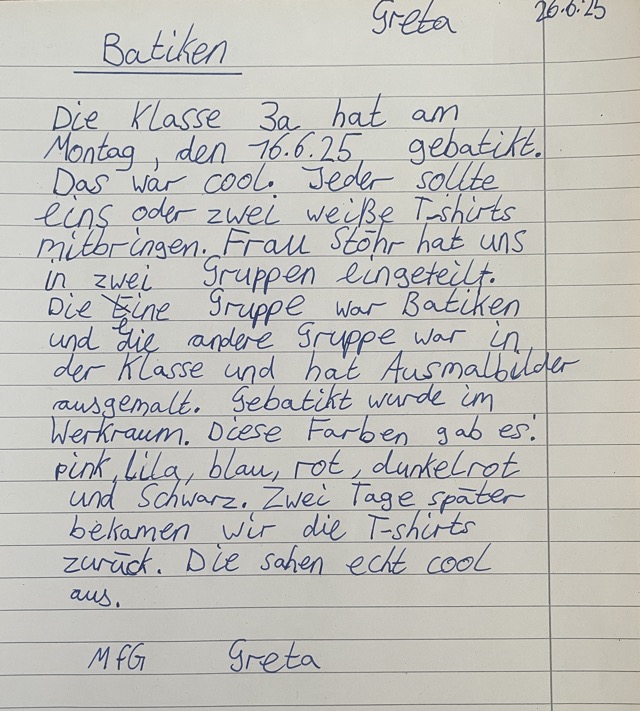 Greta 26.6.25
Batiken
Die Klasse 3a hat am
Montag, den 16.6.25 gebatikt.
Das war cool. Jeder sollte
eins oder zwei weiße T-shirts
mitbringen. Frau Stöhr hat uns
in zwei Gruppen eingeteilt.
Die eine Gruppe war Batiken
und die andere Gruppe war in
der Klasse und hat Ausmalbilder
ausgemalt. Gebatikt wurde im
Werkraum. Diese Farben gab es:
pink, lila, blau, rot, dunkelrot
und Schwarz. Zwei Tage später
bekamen wir die T-shirts
zurück. Die sahen echt cool
aus.
MfG Greta